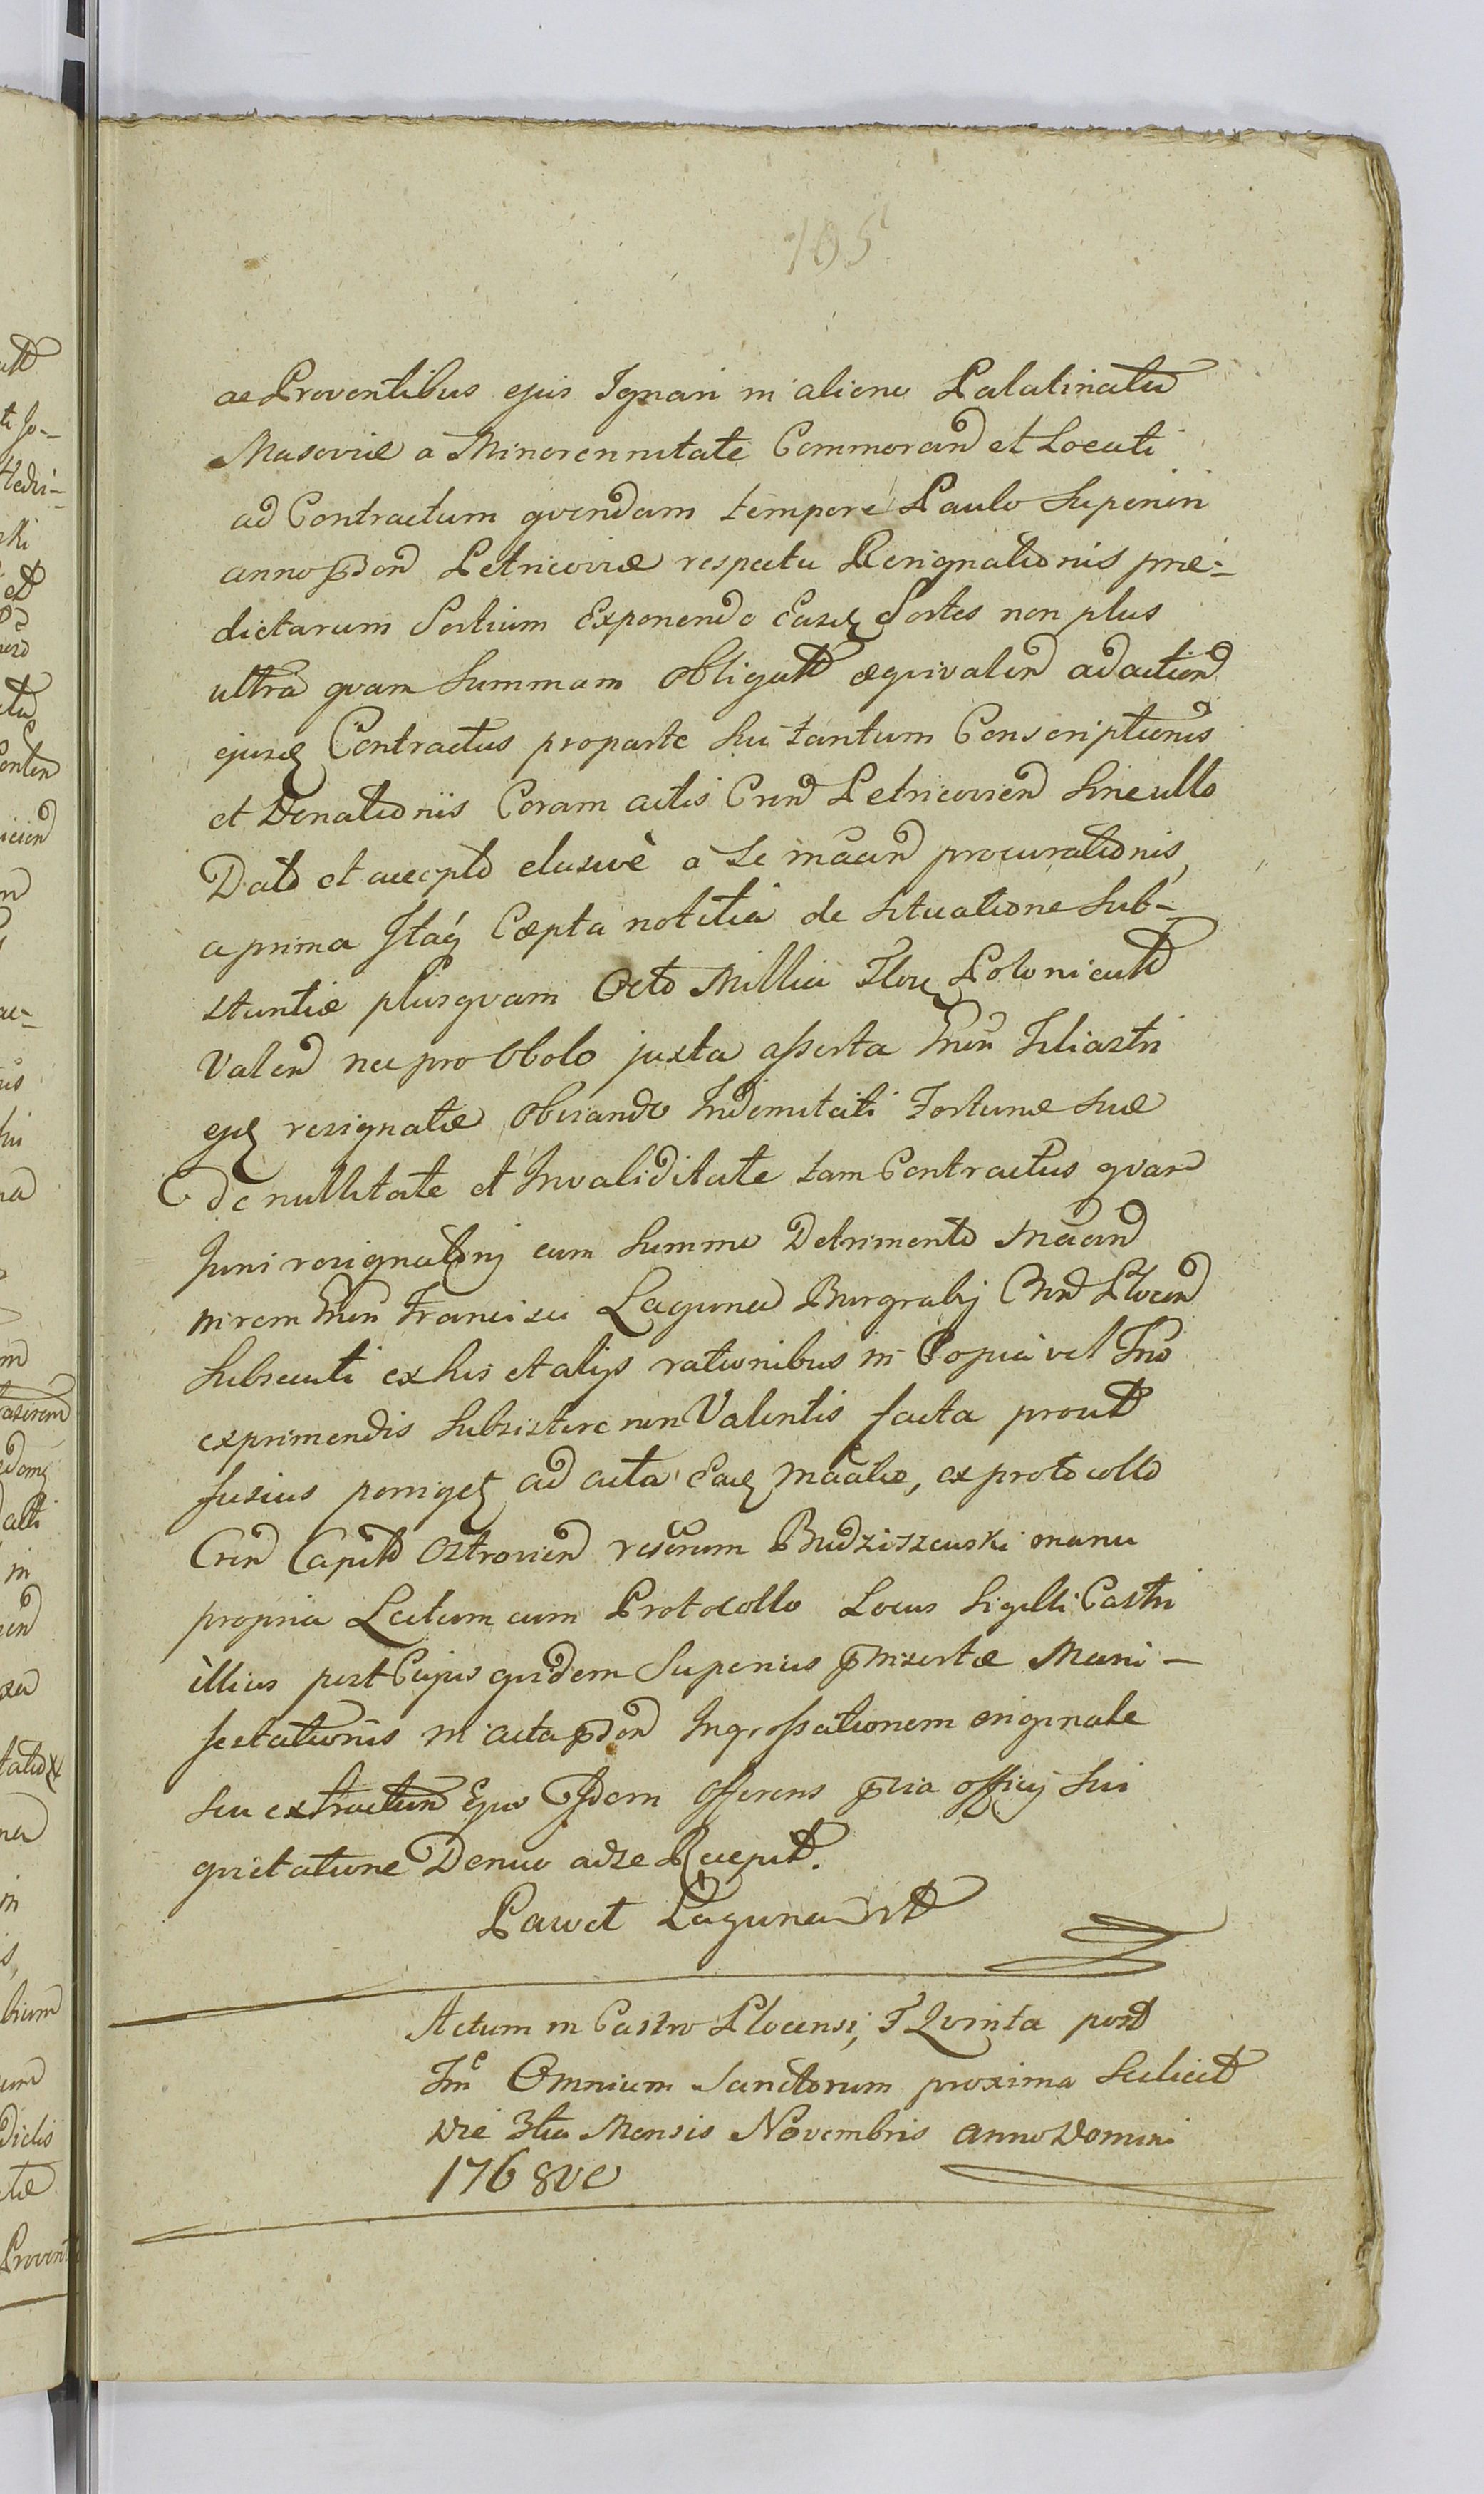 105
ac Proventibus ejus Ignari in alieno Palatinatu
Masoviæ a Minorennitate Commorand et Locati
ad Contractum qvendam tempore Paulo Superiri
anno pdon Petricoviæ respectu Resignationis præ-
dictarum Sortium Exponendo Easd Sortes non plus
ultra qvam Summam obligat æqvivalen ad action
ejusd Contractus pro parte Sui tantum Conscriptionis
et Donationis Coram actis Cren Petricovien Sine ullo
Dato et accepto elusivè a Se procurationis,
a prima Itaq Cæpta notitia de Situatione Sub-
stantiæ plusqvam Octo Millia Flor Polonicat
Valen nec pro Obolo juxta asserta Filiastri
ejq resignatæ Obviando Indemnitati Fortunæ Suæ
de nullitate et Invaliditate tam Contractus qvam
Juni resignatonj cum Summo Detrimento
in rem Francisci Laguna Burgrabij Plocen
Subsecuti ex his et alijs rationibus in Copia vel
exprimendis Subsistere non Valentis facta prout
fusius porriget ad acta Ead, ex protocollo
Cren Capit Ostrovien Budziszewski manu
propria Lectum cum Protocollo Locus Sigilli Castri
illius post Cujus qvidem Superius pInsertæ Mani-
festationis in acta pdon Ingrossationem originale
Seu extractum Ejus Idem Offerens officij Sui
qvietatione Denuo ad se Recepit.
Paweł Laguna
Actum in Castro Plocensi, F Qvinta post
Fm Omnium Sanctorum proxima Scilicet
Die 3tia Mensis Novembris anno Domini
1768vo